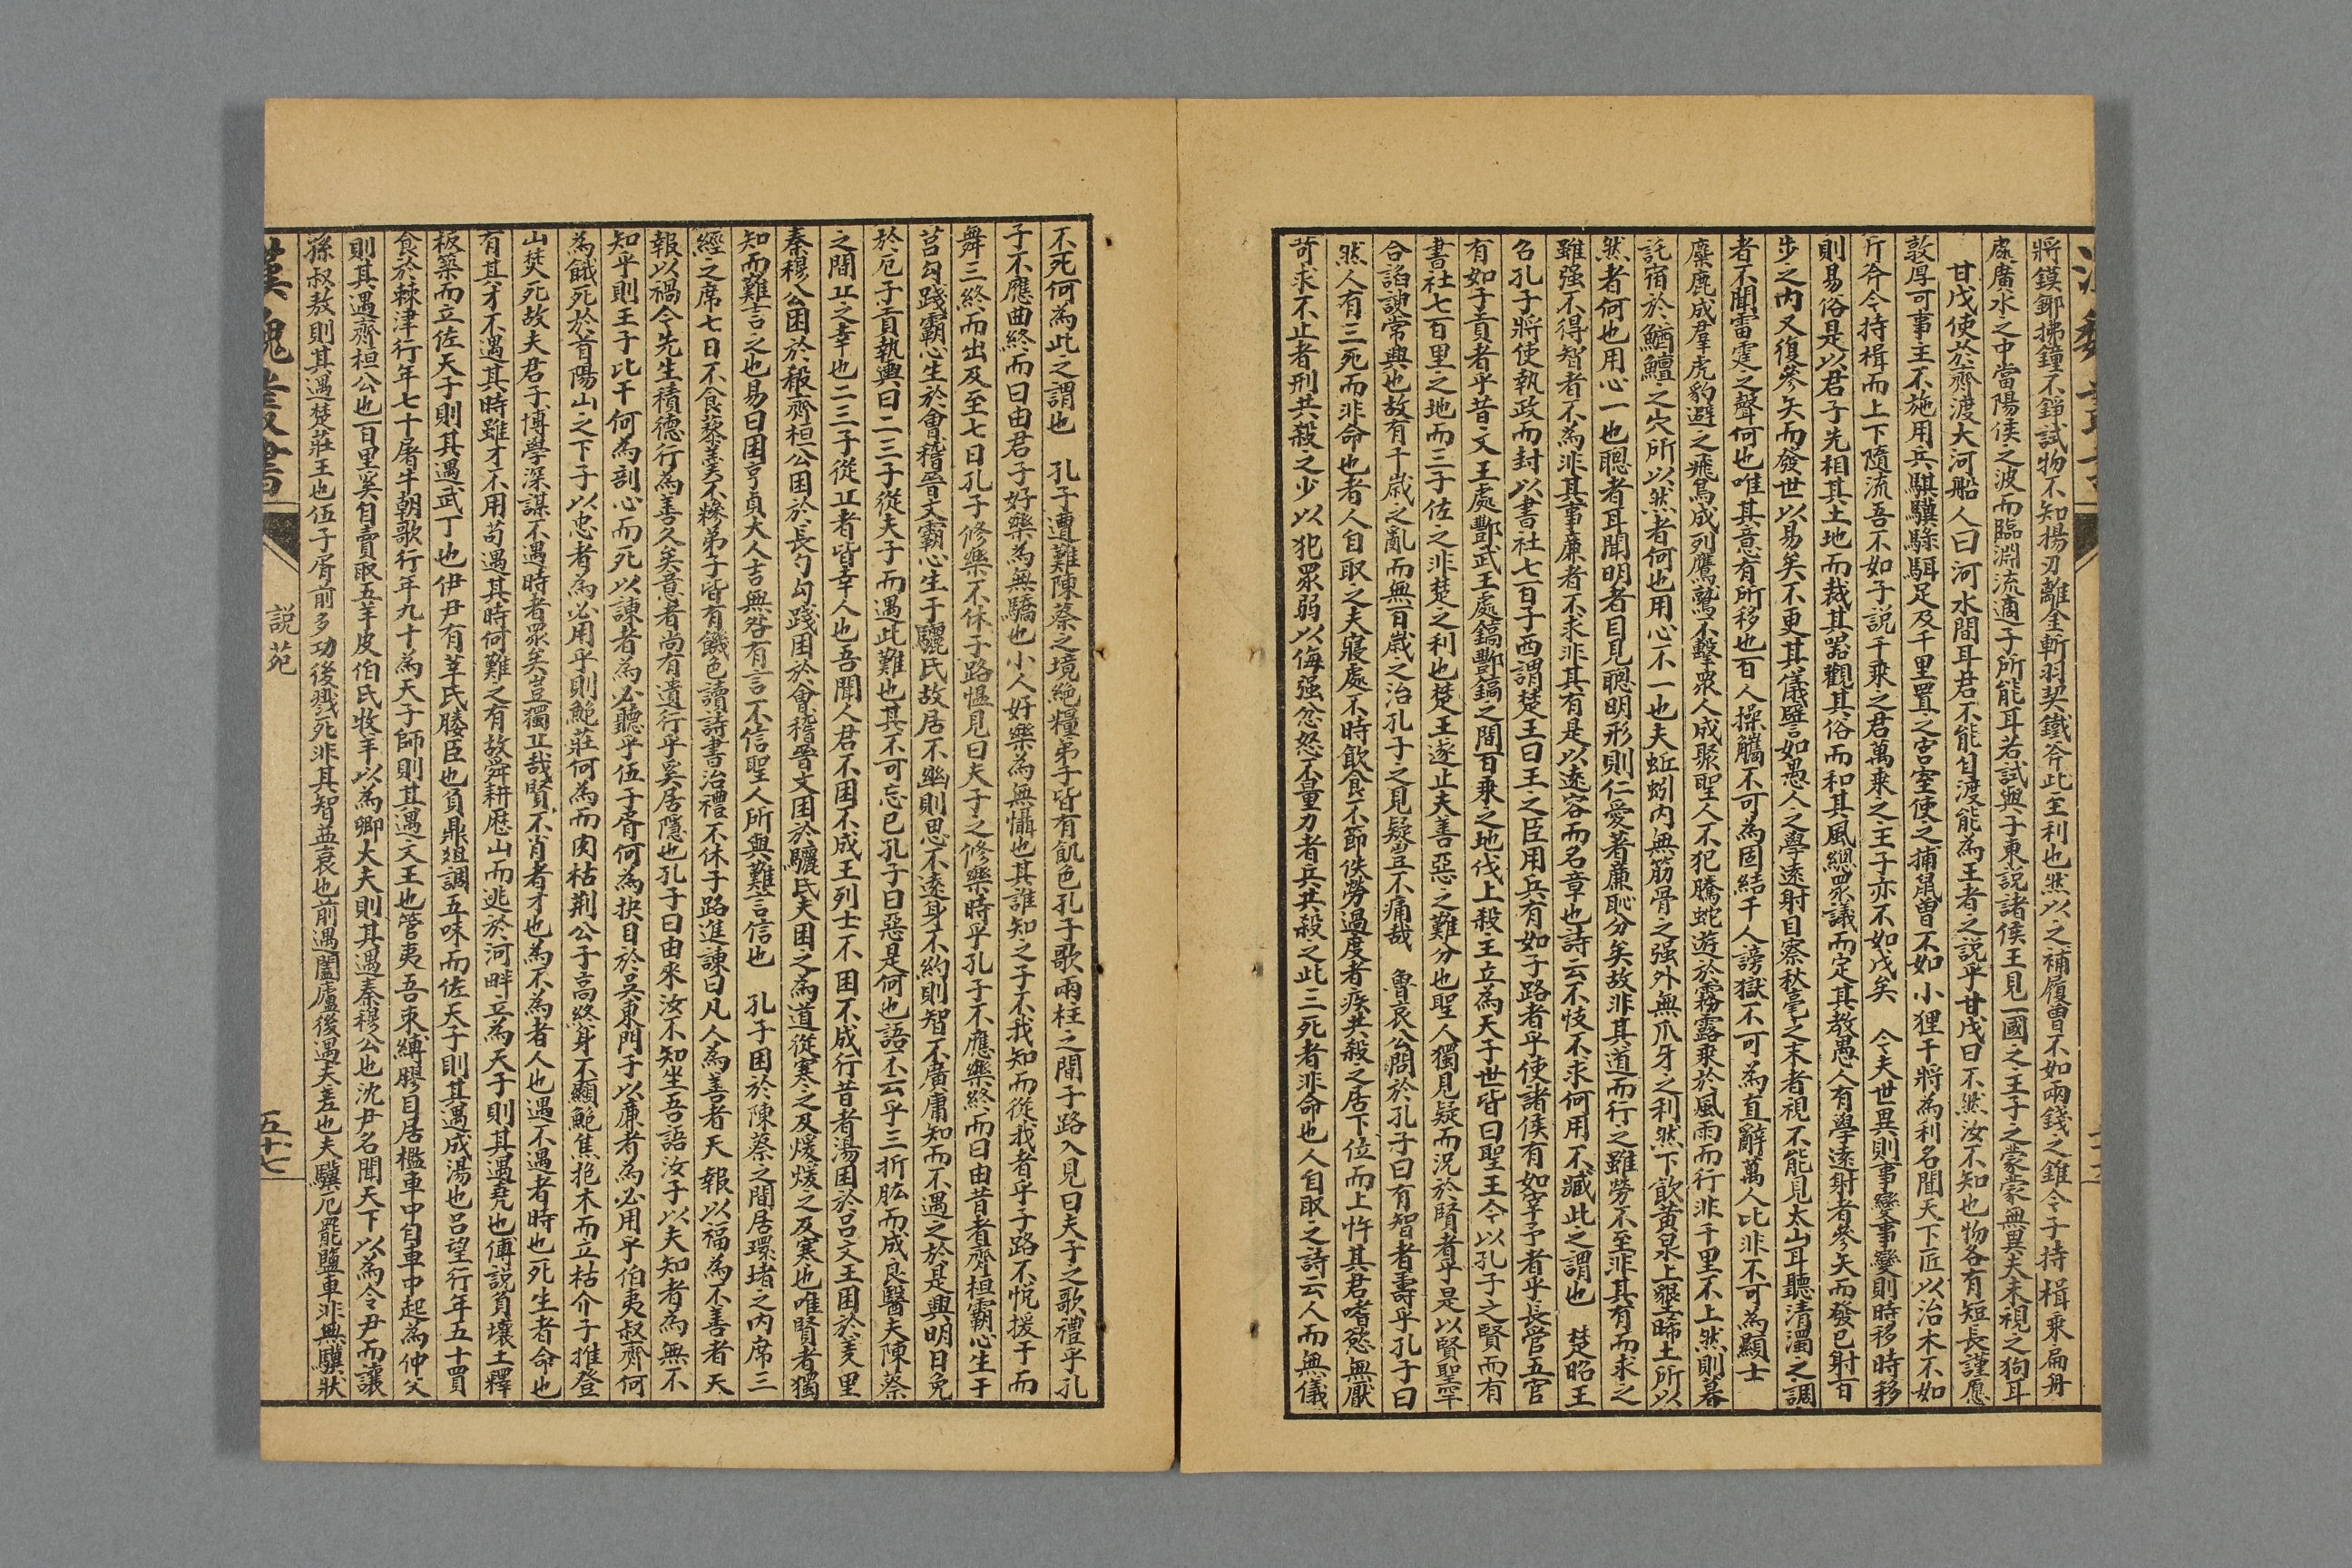 將鏌鋣拂鐘不錚試物不知揚刃離金斬羽契鐵斧此至利也然以之補履曽不如兩錢之錐今子持楫乘扁舟
處廣水之中當陽侯之波而臨淵流適子所能耳若試與子東說諸侯王見一國之王子之蒙蒙無異夫未視之狗耳
甘戊使於齊渡大河船人曰河水間耳君不能自渡能為王者之說乎甘戊曰不然汝不知也物各有短長謹愿
敦厚可事主不施用兵騏驥騄駬足及千里置之宮室使之捕鼠曽不如小狸干將為利名聞天下匠以治木不如
斤斧今持楫而上下隨流吾不如子說千乘之君萬乘之王子亦不如戊矣　今夫世異則事變事變則時移時移
則易俗是以君子先相其土地而裁其器觀其俗而和其風總眾議而定其教愚人有學遠射者參矢而發已射百
步之內又復參矢而發世以易矣不更其儀譬如愚人之學遠射目察秋毫之末者視不能見太山耳聽清濁之調
者不聞雷霆之聲何也唯其意有所移也百人操觿不可為固結千人謗獄不可為直辭萬人比非不可為顯士
麋鹿成羣虎豹避之飛鳥成列鷹鷲不擊眾人成聚聖人不犯騰蛇遊於霧露乘於風雨而行非千里不上然則暮
託宿於鰌鱣之穴所以然者何也用心不一也夫蚯蚓內無筋骨之强外無爪牙之利然下飲黃泉上墾晞土所以
然者何也用心一也聰者耳聞明者目見聰明形則仁愛著廉恥分矣故非其道而行之雖勞不至非其有而求之
雖强不得智者不為非其事廉者不求非其有是以遠容而名章也詩云不忮不求何用不臧此之謂也　楚昭王
召孔子將使執政而封以書社七百子西謂楚王曰王之臣用兵有如子路者乎使諸侯有如宰予者乎長官五官
有如子貢者乎昔文王處酆武王處鎬酆鎬之間百乘之地伐上殺主立為天子世皆曰聖王今以孔子之賢而有
書社七百里之地而三子佐之非楚之利也楚王遂止夫善惡之難分也聖人獨見疑而況於賢者乎是以賢聖罕
合諂諛常興也故有千歲之亂而無百歲之治孔子之見疑豈不痛哉　魯哀公問於孔子曰有智者壽乎孔子曰
然人有三死而非命也者人自取之夫寢處不時飲食不節佚勞過度者疾共殺之居下位而上忤其君嗜慾無厭
苛求不止者刑共殺之少以犯眾弱以侮强忿怒不量力者兵共殺之此三死者非命也人自取之詩云人而無儀
不死何為此之謂也　孔子遭難陳蔡之境絕糧弟子皆有飢色孔子歌兩柱之間子路入見曰夫子之歌禮乎孔
子不應曲終而曰由君子好樂為無驕也小人好樂為無懾也其誰知之子不我知而從我者乎子路不悅援干而
舞三終而出及至七日孔子修樂不休子路愠見曰夫子之修樂時乎孔子不應樂終而曰由昔者齊桓霸心生于
莒勾踐霸心生於會稽晉文霸心生于驪氏故居不幽則思不遠身不約則智不廣庸知而不遇之於是興明日免
於厄子貢執轡曰二三子從夫子而遇此難也其不可忘已孔子曰惡是何也語不云乎三折肱而成良醫夫陳蔡
之間丘之幸也二三子從丘者皆幸人也吾聞人君不困不成王列士不困不成行昔者湯困於呂文王困於羑里
秦穆公困於殽齊桓公困於長勺勾踐困於會稽晉文困於驪氏夫困之為道從寒之及煖煖之及寒也唯賢者獨
知而難言之也易曰困亨貞大人吉無咎有言不信聖人所與難言信也　孔子困於陳蔡之間居環堵之內席三
經之席七日不食藜羹不糝弟子皆有饑色讀詩書治禮不休子路進諫曰凡人為善者天報以福為不善者天
報以禍今先生積德行為善久矣意者尚有遺行乎奚居隱也孔子曰由來汝不知坐吾語汝子以夫知者為無不
知乎則王子比干何為剖心而死以諫者為必聽乎伍子胥何為抉目於吳東門子以廉者為必用乎伯夷叔齊何
為餓死於首陽山之下子以忠者為必用乎則鮑莊何為而肉枯荆公子高終身不顯鮑焦抱木而立枯介子推登
山焚死故夫君子博學深謀不遇時者眾矣豈獨丘哉賢不肖者才也為不為者人也遇不遇者時也死生者命也
有其才不遇其時雖才不用苟遇其時何難之有故舜耕歷山而逃於河畔立為天子則其遇堯也傅說負壤土釋
板築而立佐天子則其遇武丁也伊尹有莘氏媵臣也負鼎俎調五味而佐天子則其遇成湯也呂望行年五十買
食於棘津行年七十屠牛朝歌行年九十為天子師則其遇文王也管夷吾束縛膠目居檻車中自車中起為仲父
則其遇齊桓公也百里奚自賣取五羊皮伯氏牧羊以為卿大夫則其遇秦穆公也沈尹名聞天下以為令尹而讓
孫叔敖則其遇楚莊王也伍子胥前多功後戮死非其智益衰也前遇闔廬後遇夫差也夫驥厄罷鹽車非無驥狀
漢魏叢書
說苑
五十七